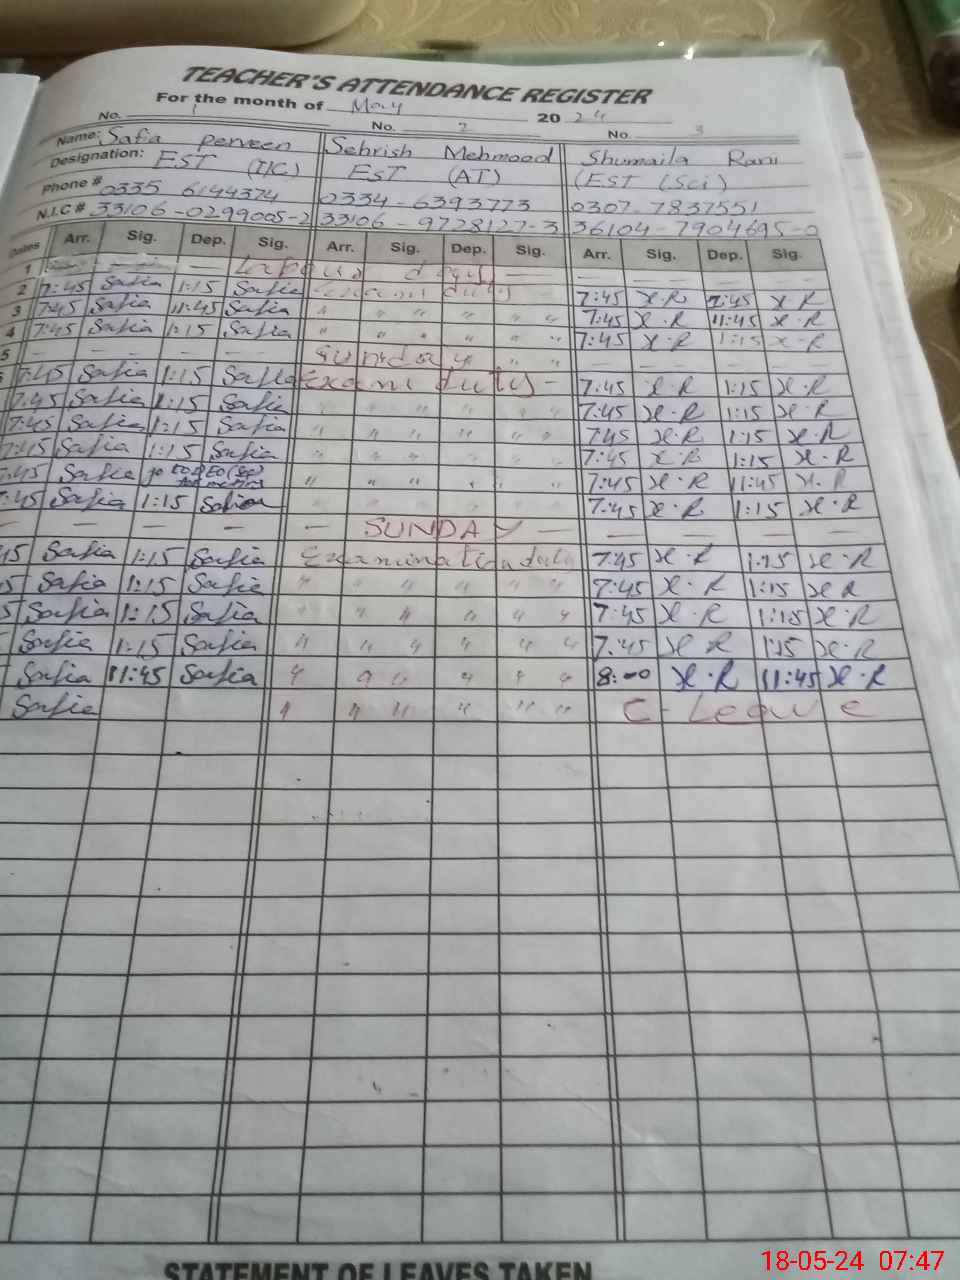 TEACHER'S ATTENDANCE REGISTER
For the month of May 2024
No. 1 No. 2 No. 3
Name: Safia Perveen Sehrish Mehmood Shumaila Rani
Designation: EST (I/C) EST (AT) (EST (Sci)
Phone # 0335 6144374 0334-6393773 0307-7837551
N.I.C # 33106-0299005-2 33106-9728127-3 36104-7904695-0
Dates Arr. Sig. Dep. Sig. Arr. Sig. Dep. Sig. Arr. Sig. Dep. Sig.
1 — Labour days — — — — —
2 7:45 Safia 1:15 Safia Exam duty 7:45 X.R 7:45 X R
3 7:45 Safia 11:45 Safia " " " " " " 7:45 X.R 11:45 X.R
4 7:45 Safia 1:15 Safia " " " " " " 7:45 X.R 1:15 X-R
5 — — — — — Sunday " " — — — —
7:45 Safia 1:15 Safia Exam duty - 7:45 X.R 1:15 X.R
7:45 Safia 1:15 Safia " " " " " " 7:45 X.R 1:15 X.R
7:45 Safia 1:15 Safia " " " " " " 7:45 X.R 1:15 X.R
7:45 Safia 1:15 Safia " " " " " " 7:45 X.R 1:15 X.R
7:45 Safia " " " " " " 7:45 X.R 11:45 X.R
:45 Safia 1:15 Safia " " " " " " 7:45 X.R 1:15 X.R
— — — — — SUNDAY — — — — —
45 Safia 1:15 Safia Examination duty 7:45 X.R 1:15 X.R
5 Safia 1:15 Safia " " " " " " 7:45 X.R 1:15 X R
5 Safia 1:15 Safia " " " " " " 7:45 X.R 1:15 X.R
Safia 1:15 Safia " " " " " " 7:45 X R 1:15 X.R
Safia 11:45 Safia " " " " " " 8:00 X.R 11:45 X.R
Safia " " " " " " C-Leave
STATEMENT OF LEAVES TAKEN
18-05-24 07:47